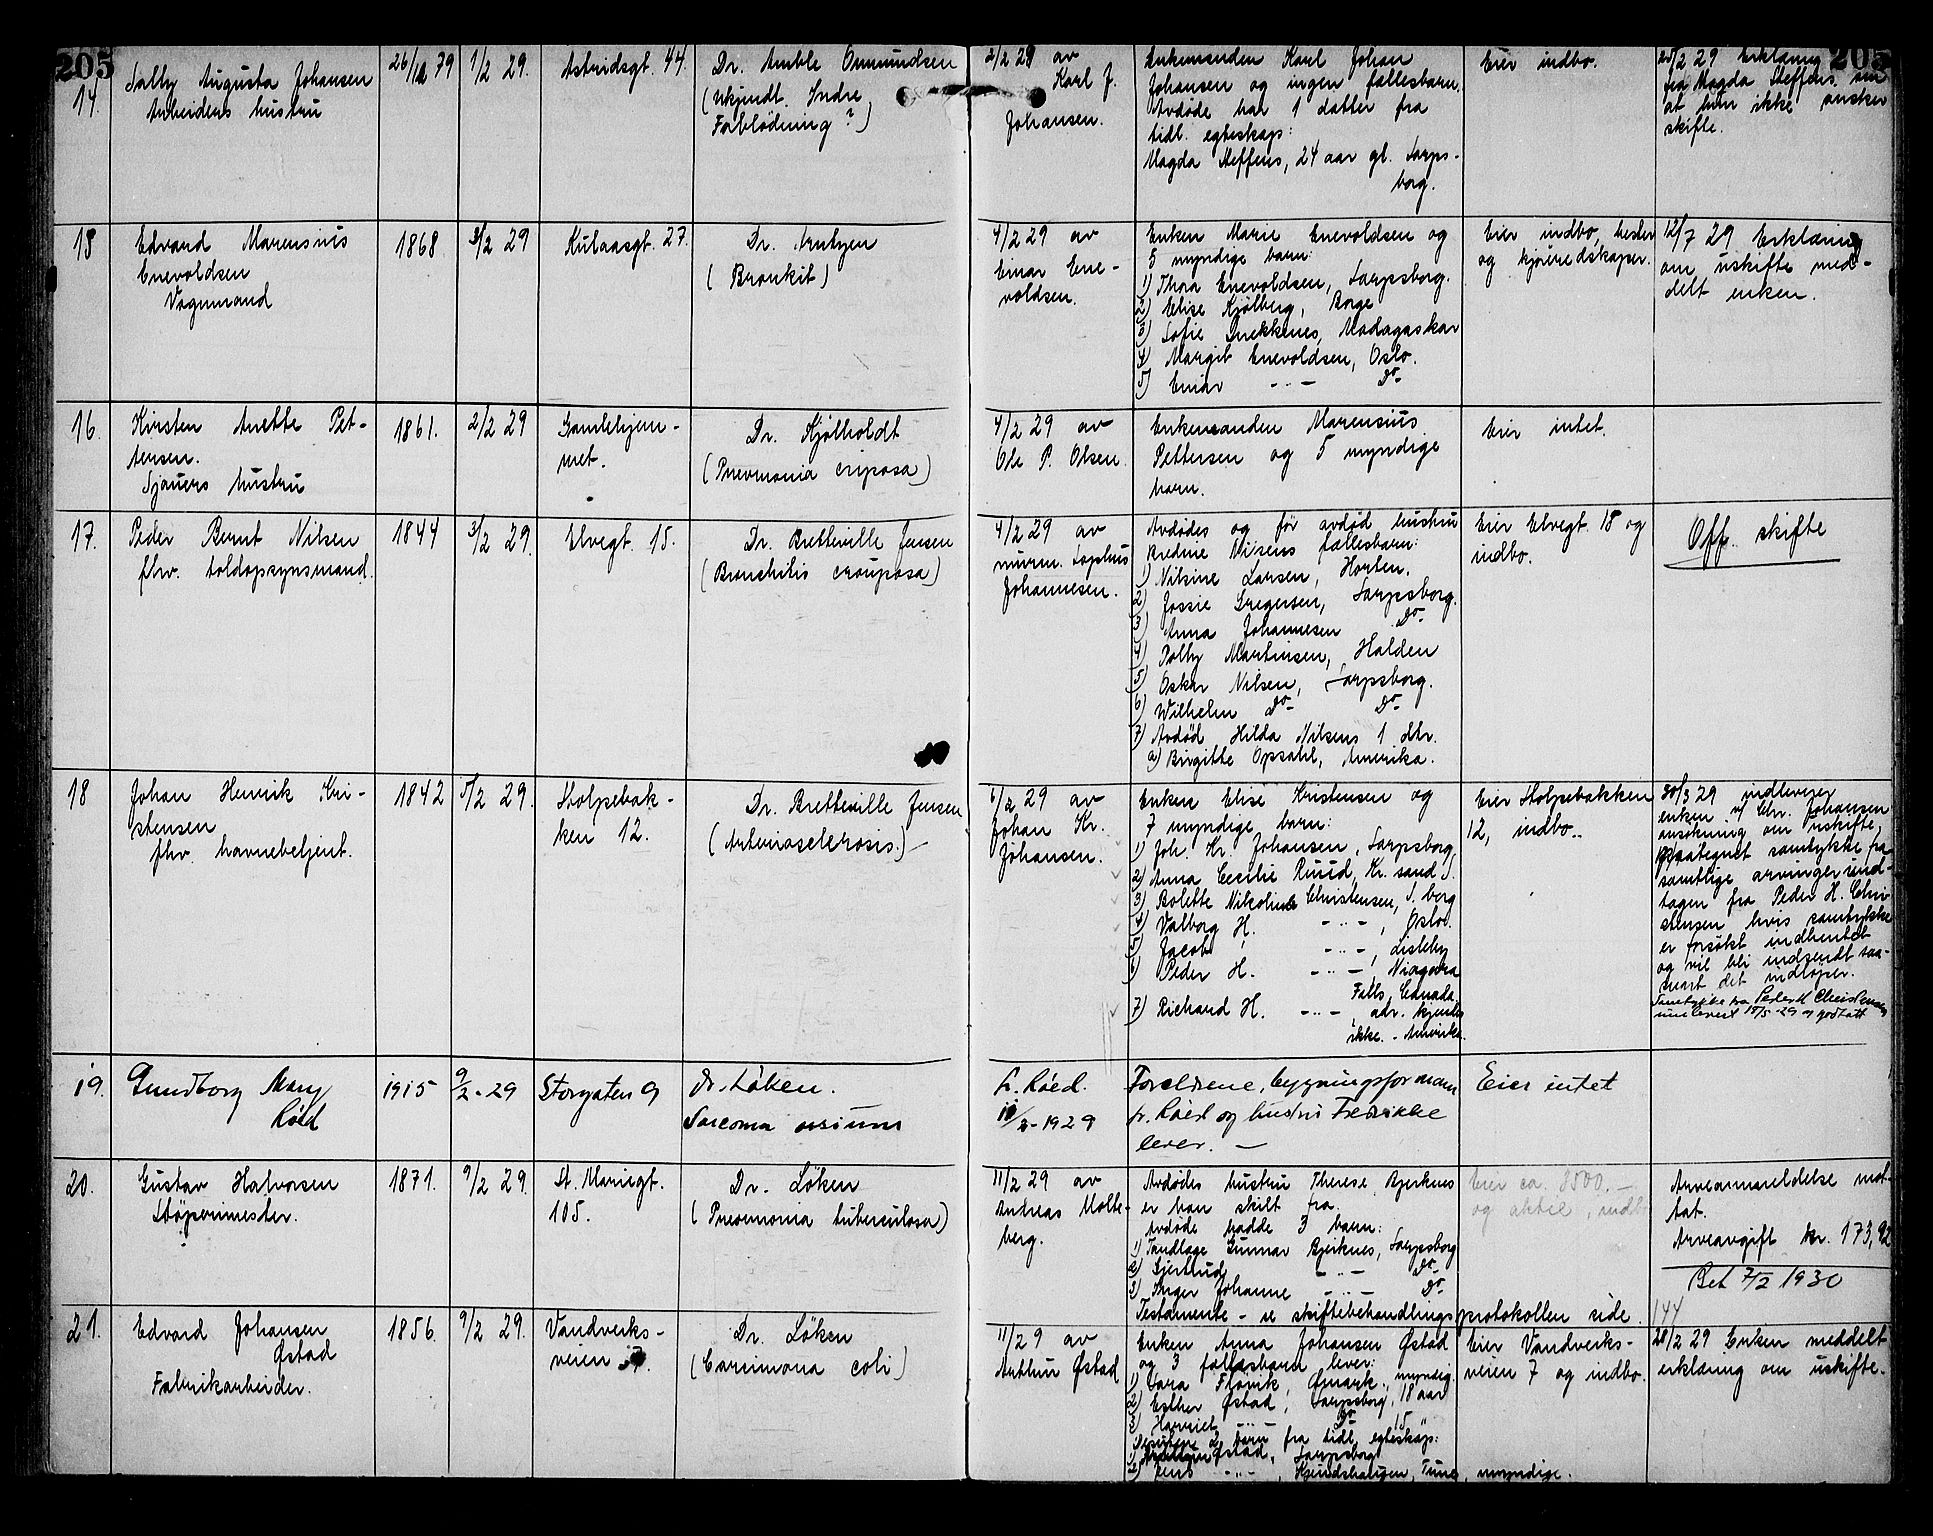 205
205
14.
Salby Augusta Johansen
Arbeiders hustru
26/12 79
1/2 29.
Astridsgt. 44.
Dr. Amble Ommundsen
(Ukjendt. Indre
Forblødning?)
2/2 29 av
Karl J.
Johansen.
Enkemanden Karl Johan
Johansen og ingen fællesbarn.
Avdøde har 1 datter fra
tidl. egteskap:
Magda Steffens, 24 aar gl. Sarps-
borg.
Eier indbo.
25/2 29 Erklæring
fra Magda Steffens om
at hun ikke ønsker
skifte.
15
Edvard Marensius
Enevoldsen
Vognmand
1868
3/2 29
Kulaasgt. 27.
Dr. Arntzen
(Bronkit)
4/2 29 av
Einar Ene-
voldsen.
Enken Marie Enevoldsen og
5 myndige barn:
1) Thora Enevoldsen, Sarpsborg.
2) Elise Kjølberg, Borge
3) Sofie Snekkenes, Madagaskar
4) Margit Enevoldsen, Oslo.
5) Einar -"- Do-
Eier indbo, hester
og kjøreredskaper.
12/7 29 Erklæring
om uskifte med-
delt enken.
16.
Kirsten Anette Pet-
tersen.
Sjauers hustru
1861.
2/2 29
Gamlehjem-
met.
Dr. Kjølholdt
(Pnevmonia criposa)
4/2 29 av
Ole P. Olsen.
Enkemanden Marensius
Pettersen og 5 myndige
barn.
Eier intet.
17.
Peder Bernt Nilsen
fhv. toldopsynsmand.
1844
3/2 29.
Elvegt. 15.
Dr. Bretteville Jensen
(Bronchitis crouposa)
4/2 29 av
murm. Sophus
Johannesen.
Avdødes og før avdød hustru
Bredine Nilsens fællesbarn:
1) Nilsine Larsen, Horten.
2) Jossie Gregersen, Sarpsborg.
3) Anna Johannesen Do-
4) Dolby Martinsen, Halden
5) Oskar Nilsen, Sarpsborg.
6) Wilhelm Do- Do-
7) Avdød Hilda Nilsens 1 dtr.
a) Birgitte Opsahl, Amerika.
Eier Elvegt. 18 og
indbo.
Off. skifte
18
Johan Henrik Kri-
stensen
fhv. havnebetjent.
1842
5/2 29.
Stolpebak-
ken 12.
Dr. Bretteville Jensen
(Arteriosclerosis.)
6/2 29 av
Johan Kr.
Johansen.
Enken Elise Kristensen og
7 myndige barn:
1) Joh. Kr. Johansen, Sarpsborg,
2) Anna Cecilie Ruud, Kr. sand S.
3) Bolette Nikoline Christensen, S. borg
4) Valborg H. -"-, Oslo.
5) Jacob -"-, Lisleby
6) Peder H. -"-, Niagara
Falls, Canada
7) Richard H. -"-, adr. kjendes
ikke. - Amerika.
Eier Stolpebakken
12, indbo.
30/3 29 indleverer
enken v/ Chr. Johansen
ansøkning om uskifte,
paategnet samtykke fra
samtlige arvinger und-
tagen fra Peder H. Chri-
stensen hvis samtykke
er forsøkt indhentet
og vil bli indsendt saa-
snart det indløper.
Samtykke fra Peder H Christensen
innlevert 15/5-29 og godtatt
19.
Gundborg Mary
Röed
1915
9/2-29
Storgaten 9
Dr. Løken.
Sarcoma ossium
Fr. Röed.
11/2-1929
Foreldrene, bygningsformann
Fr. Röed og hustru Fredrikke
lever. -
Eier intet
20.
Gustav Halvorsen
Støperimester.
1871.
9/2 29.
St. Mariegt.
105.
Dr. Løken
(Pnevmonia tuberculosa)
11/2 29 av
Andreas Molte-
berg.
Avdødes hustru Therese Bjerknes
er han skilt fra.
Avdøde hadde 3 barn:
1) Tandlæge Gunnar Bjerknes, Sarpsborg
2) Gjertrud -"- Do-
3) Inger Johanne -"- Do-
Testamente - se skiftebehandlingsprotokollen side. 144
Eier ca. 8500.-
og aktie, indbo
Arveanmeldelse mot-
tat.
Arveavgift kr. 173,92
Bet 7/2 1930
21.
Edvard Johansen
Østad
Fabrikarbeider.
1856.
9/2 29.
Vandverks-
veien 7.
Dr. Løken
(Carcimona coli)
11/2 9 av
Arthur Østad
Enken Anna Johansen Østad
og 3 fællesbarn lever:
1) Vara Flønik, Ømark, myndig.
2) Esther Østad, Sarpsborg, 18 aar
3) Harriet -"- Do- 15
Desuten 2 barn fra tidl. egteskap:
1) Østad, Sarpsborg
2) Jens -"-, Hundskaugen, Tune, myndige.
Eier Vandverks-
veien 7 og indbo.
28/2 29 Enken meddelt
erklæring om uskifte.